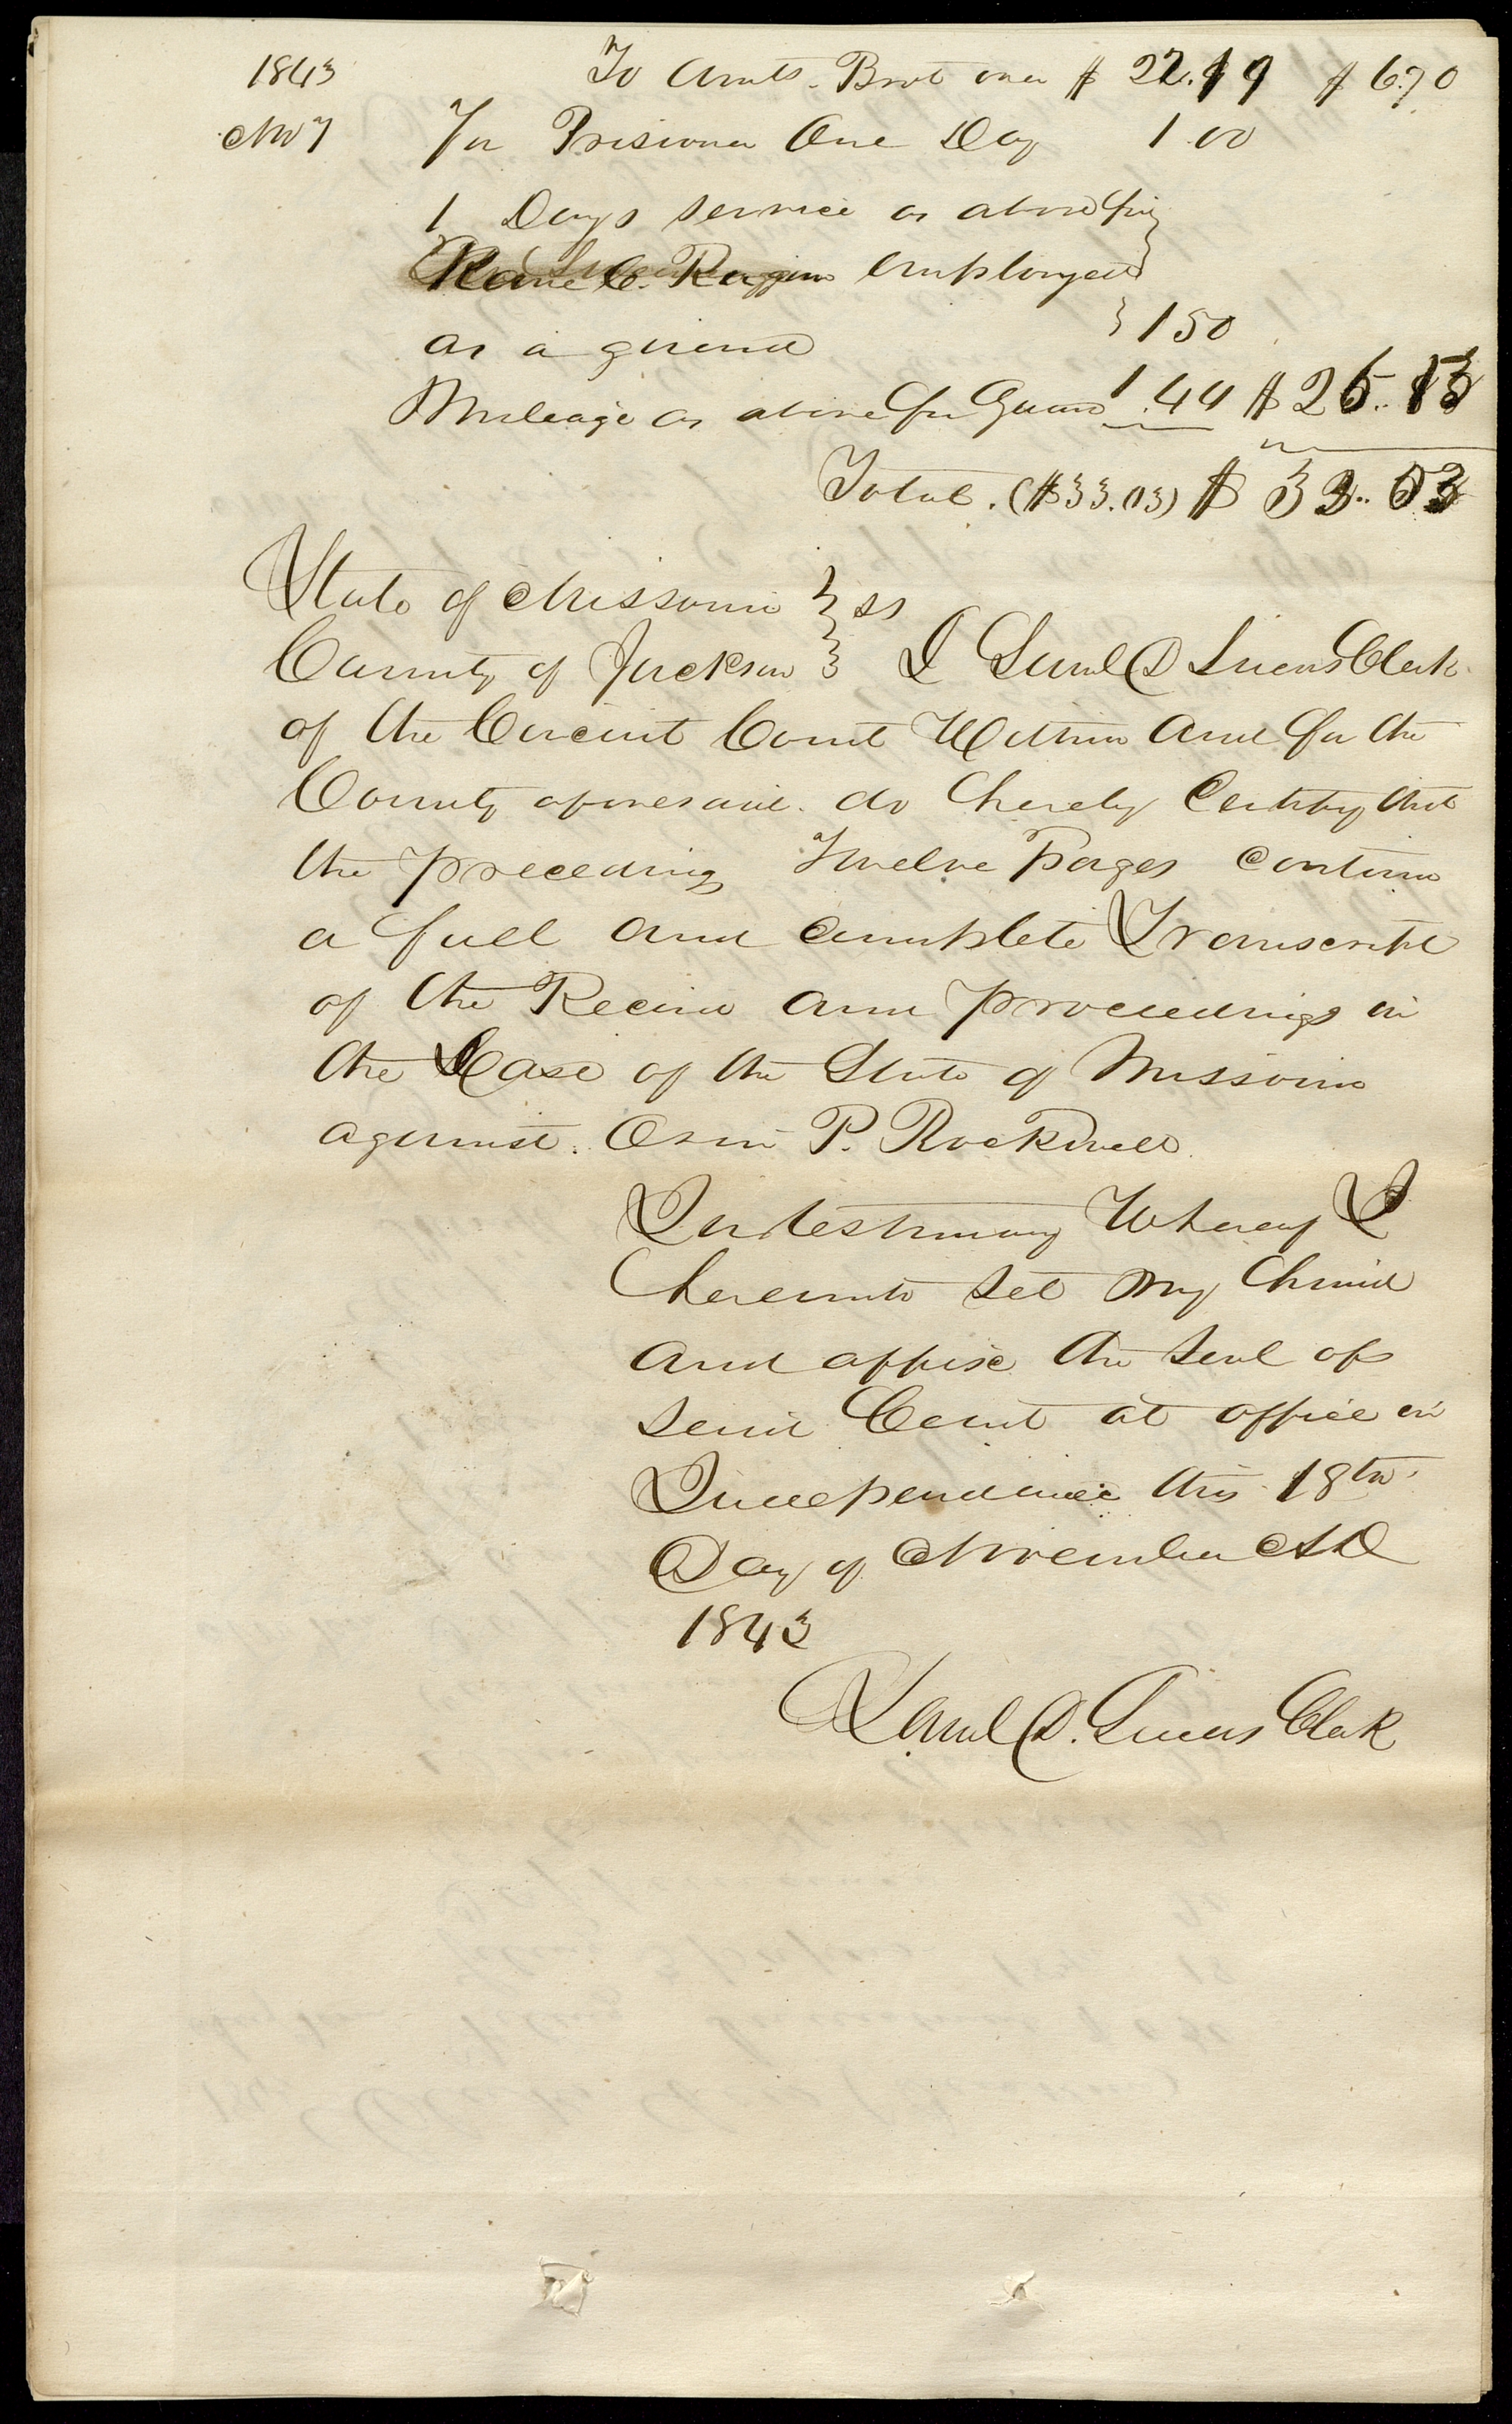 1843 To Amts. Brot over $ 22.19 $ 6.70
Nov 7 For Prisoner One Day 1.00
1 Days service as above for }
Ragan employed }
as a guard } 1 50
Mileage as above for Guard 1.44 $ 26.13
Total. ($33.03) $ 32.83
State of Missouri } ss
County of Jackson } I Saml D Lucas Clerk
of the Circuit Court Within and for the
County aforesaid. do hereby Certify that
the preceding Twelve pages contain
a full and complete Transcript
of the Record and proceedings in
the Case of the State of Missouri
against. Orin P. Rockwell.
In testimony Whereof I
hereunto set my hand
and affix the seal of
said Court at office in
Independence this 18th
Day of November AD
1843
Saml D. Lucas Clerk